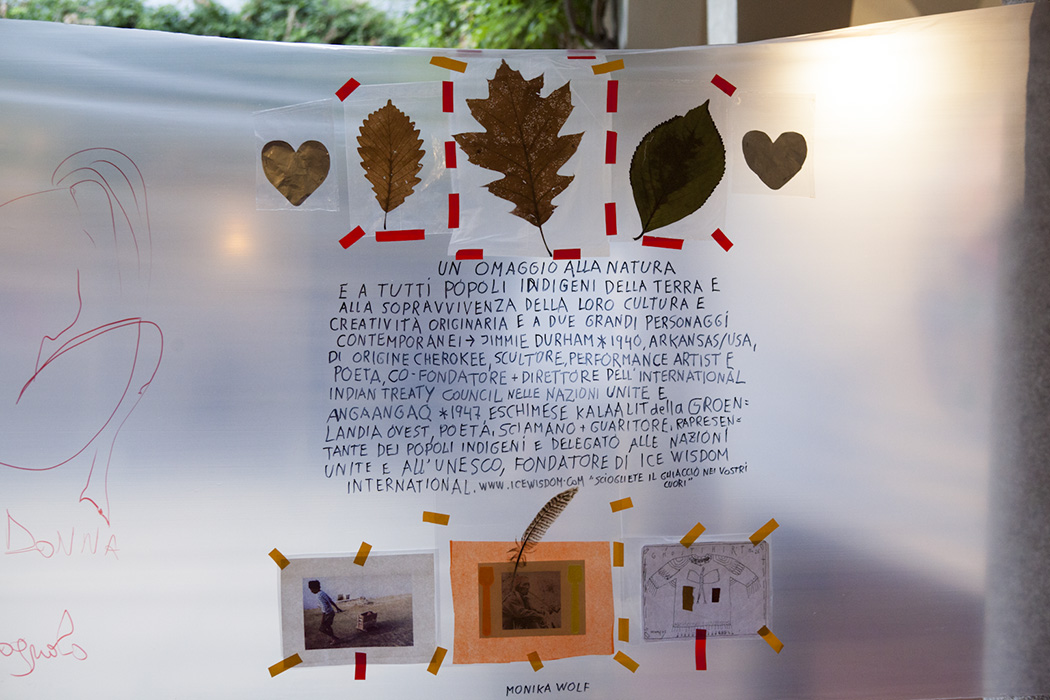 UN OMAGGIO ALLA NATURA
E A TUTTI POPOLI INDIGENI DELLA TERRA E
ALLA SOPRAVVIVENZA DELLA LORO CULTURA E
CREATIVITÀ ORIGINARIA E A DUE GRANDI PERSONAGGI
CONTEMPORANEI → JIMMIE DURHAM * 1940, ARKANSAS/USA,
DI ORIGINE CHEROKEE, SCULTORE, PERFORMANCE ARTIST E
POETA, CO-FONDATORE + DIRETTORE DELL'INTERNATIONAL
INDIAN TREATY COUNCIL NELLE NAZIONI UNITE E
ANGAANGAQ * 1947, ESCHIMESE KALAALIT della GROEN=
LANDIA OVEST, POETA, SCIAMANO + GUARITORE, RAPRESEN=
TANTE DEI POPOLI INDIGENI E DELEGATO ALLE NAZIONI
UNITE E ALL'UNESCO, FONDATORE DI ICE WISDOM
INTERNATIONAL. WWW.ICEWISDOM.COM "SCIOGLIETE IL GHIACCIO NEI VOSTRI
CUORI"
DONNA
MONIKA WOLF